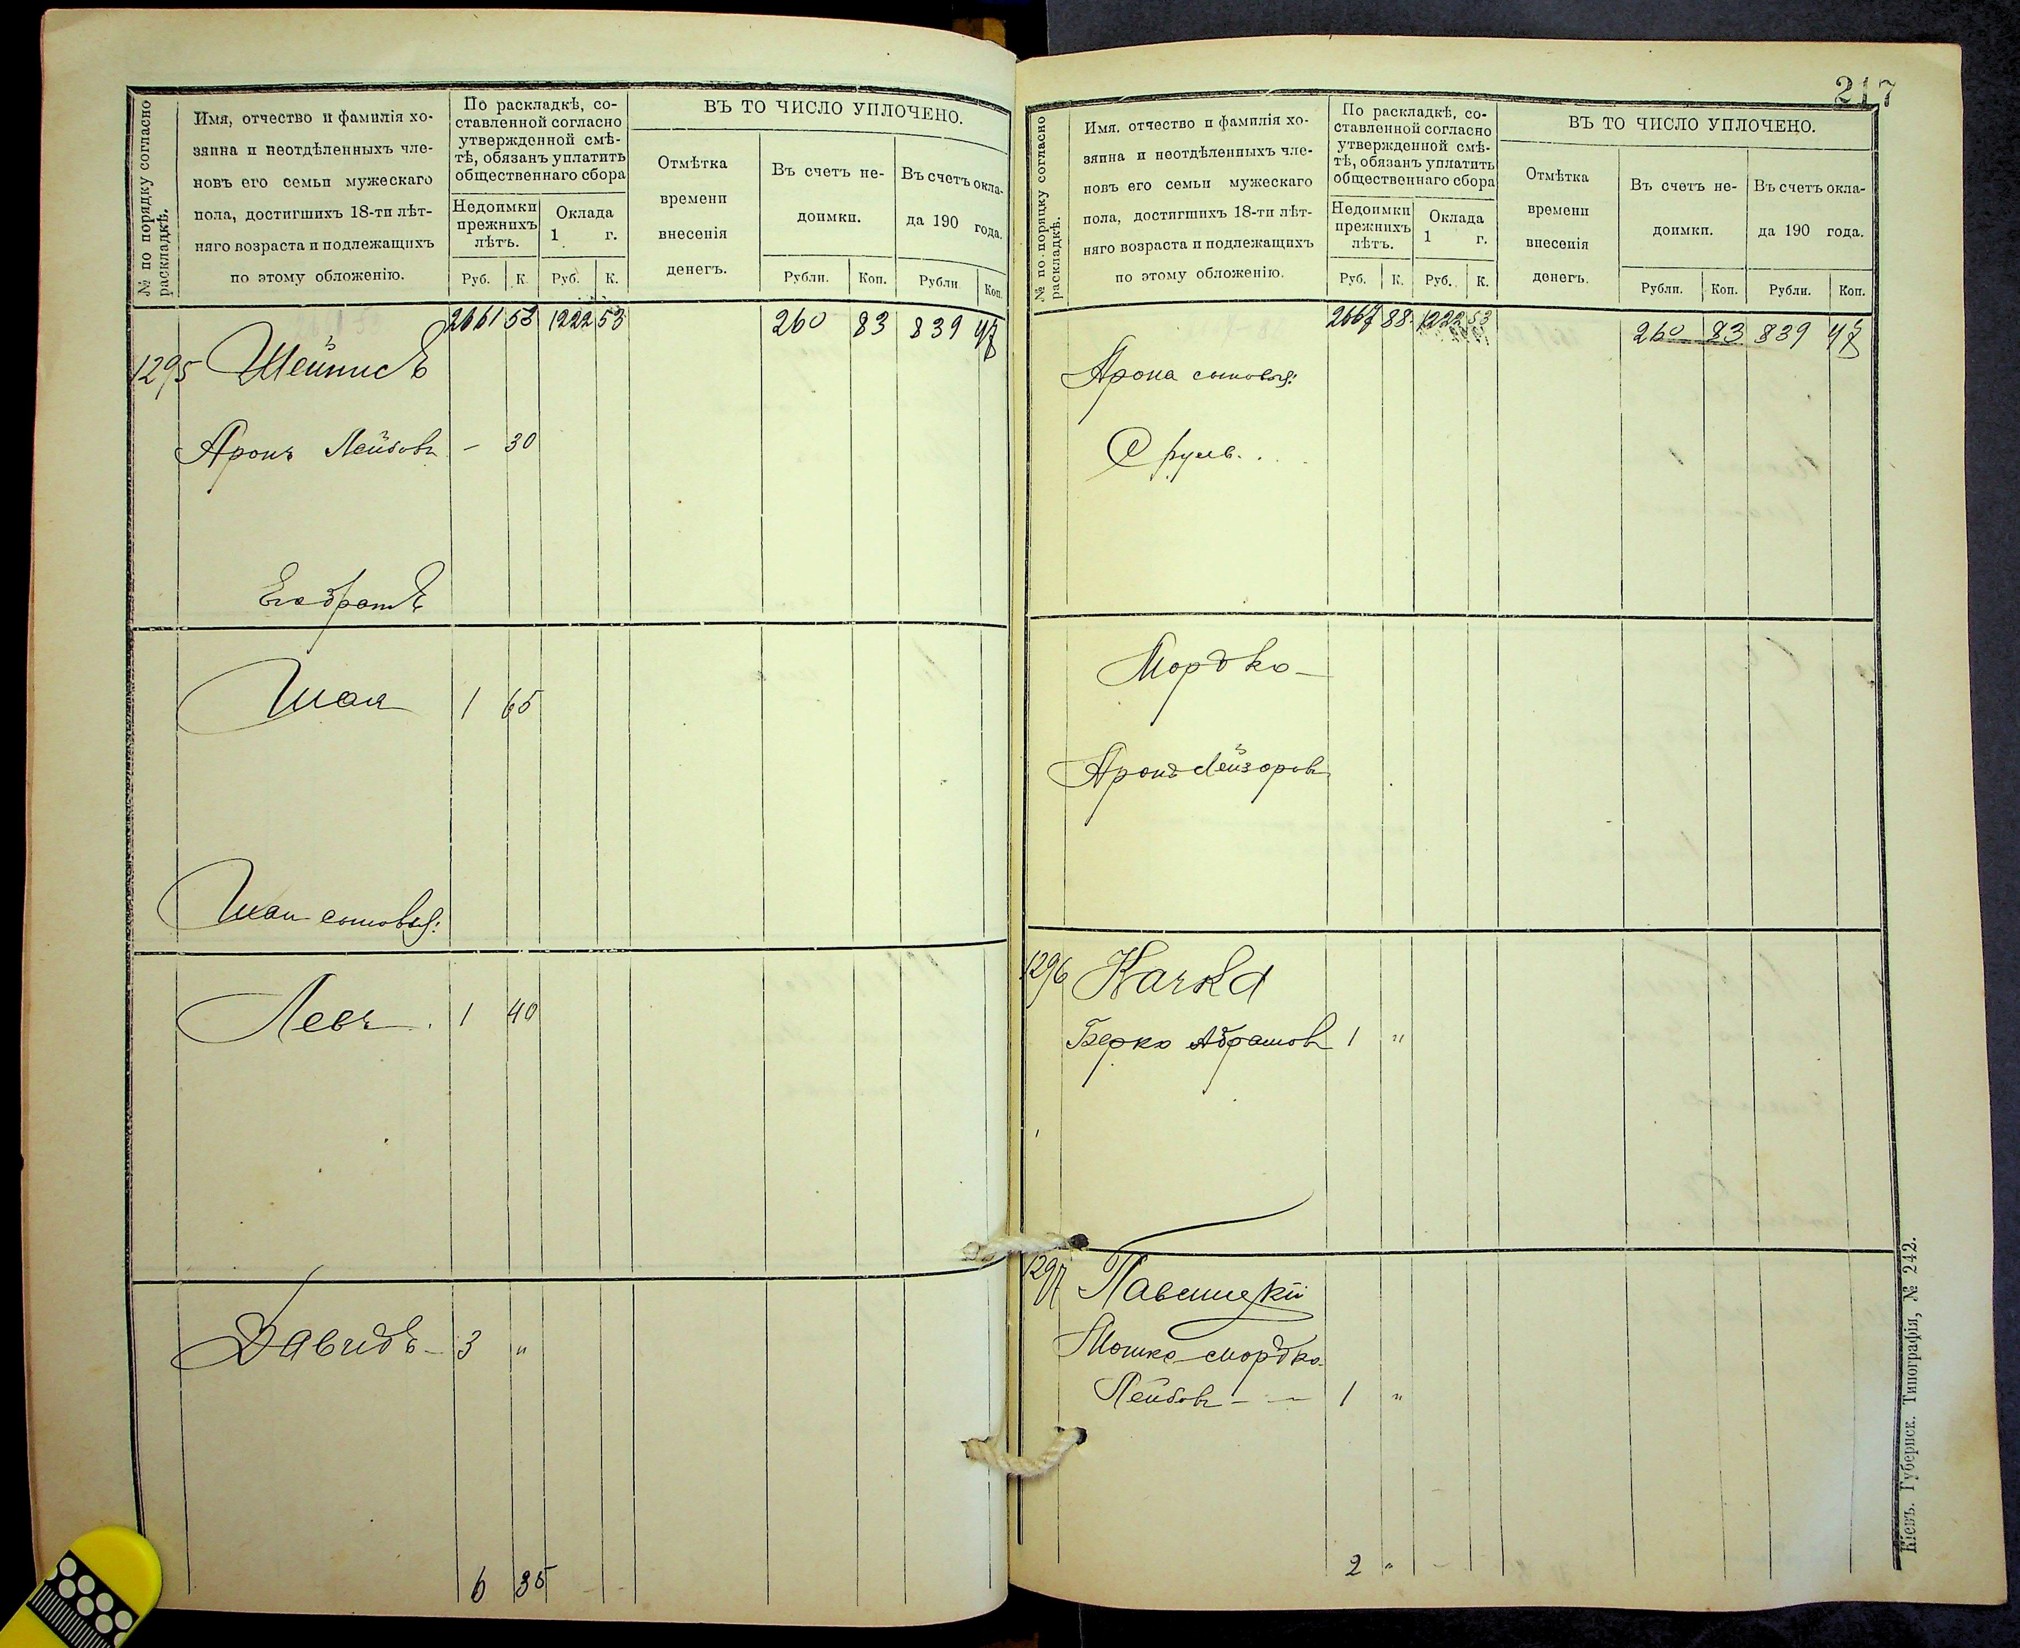 № по порядку согласно
раскладкѣ.
Имя, отчество и фамилія хо-
зяина и неотдѣленныхъ чле-
новъ его семьи мужескаго
пола, достигшихъ 18-ти лѣт-
няго возраста и подлежащихъ
по этому обложенію.
По раскладкѣ, со-
ставленной согласно
утвержденной смѣ-
тѣ, обязанъ уплатить
общественнаго сбора
Недоимки
прежнихъ
лѣтъ.
Оклада
1 г.
Руб. К. Руб. К.
ВЪ ТО ЧИСЛО УПЛОЧЕНО.
Отмѣтка
времени
внесенія
денегъ.
Въ счетъ не-
доимки.
Въ счетъ окла-
да 190 года.
Рубли. Коп. Рубли Коп.
2661 53 1222 53 260 83 839 47
1295
Аронъ Лейбовъ - 30
Его братъ
Шая 1 65
Шаи сыновья:
Левъ 1 40
Давидъ 3 "
6 35
217
№ по порядку согласно
раскладкѣ.
Имя, отчество и фамилія хо-
зяина и неотдѣленныхъ чле-
новъ его семьи мужескаго
пола, достигшихъ 18-ти лѣт-
няго возраста и подлежащихъ
по этому обложенію.
По раскладкѣ, со-
ставленной согласно
утвержденной смѣ-
тѣ, обязанъ уплатить
общественнаго сбора
Недоимки
прежнихъ
лѣтъ.
Оклада
1 г.
Руб. К. Руб. К.
ВЪ ТО ЧИСЛО УПЛОЧЕНО.
Отмѣтка
времени
внесенія
денегъ.
Въ счетъ не-
доимки.
Въ счетъ окла-
да 190 года.
Рубли. Коп. Рубли. Коп.
2667 88 1222 53 260 83 839 47
Арона сыновья:
Сруль
Мордко
Аронъ Лейзоровъ
1296 Качка
Берко Абрамовъ 1 "
1297
Мошко Мордко-
Лейбовъ 1 "
2 "
Кіевъ. Губернск. Типографія, № 242.